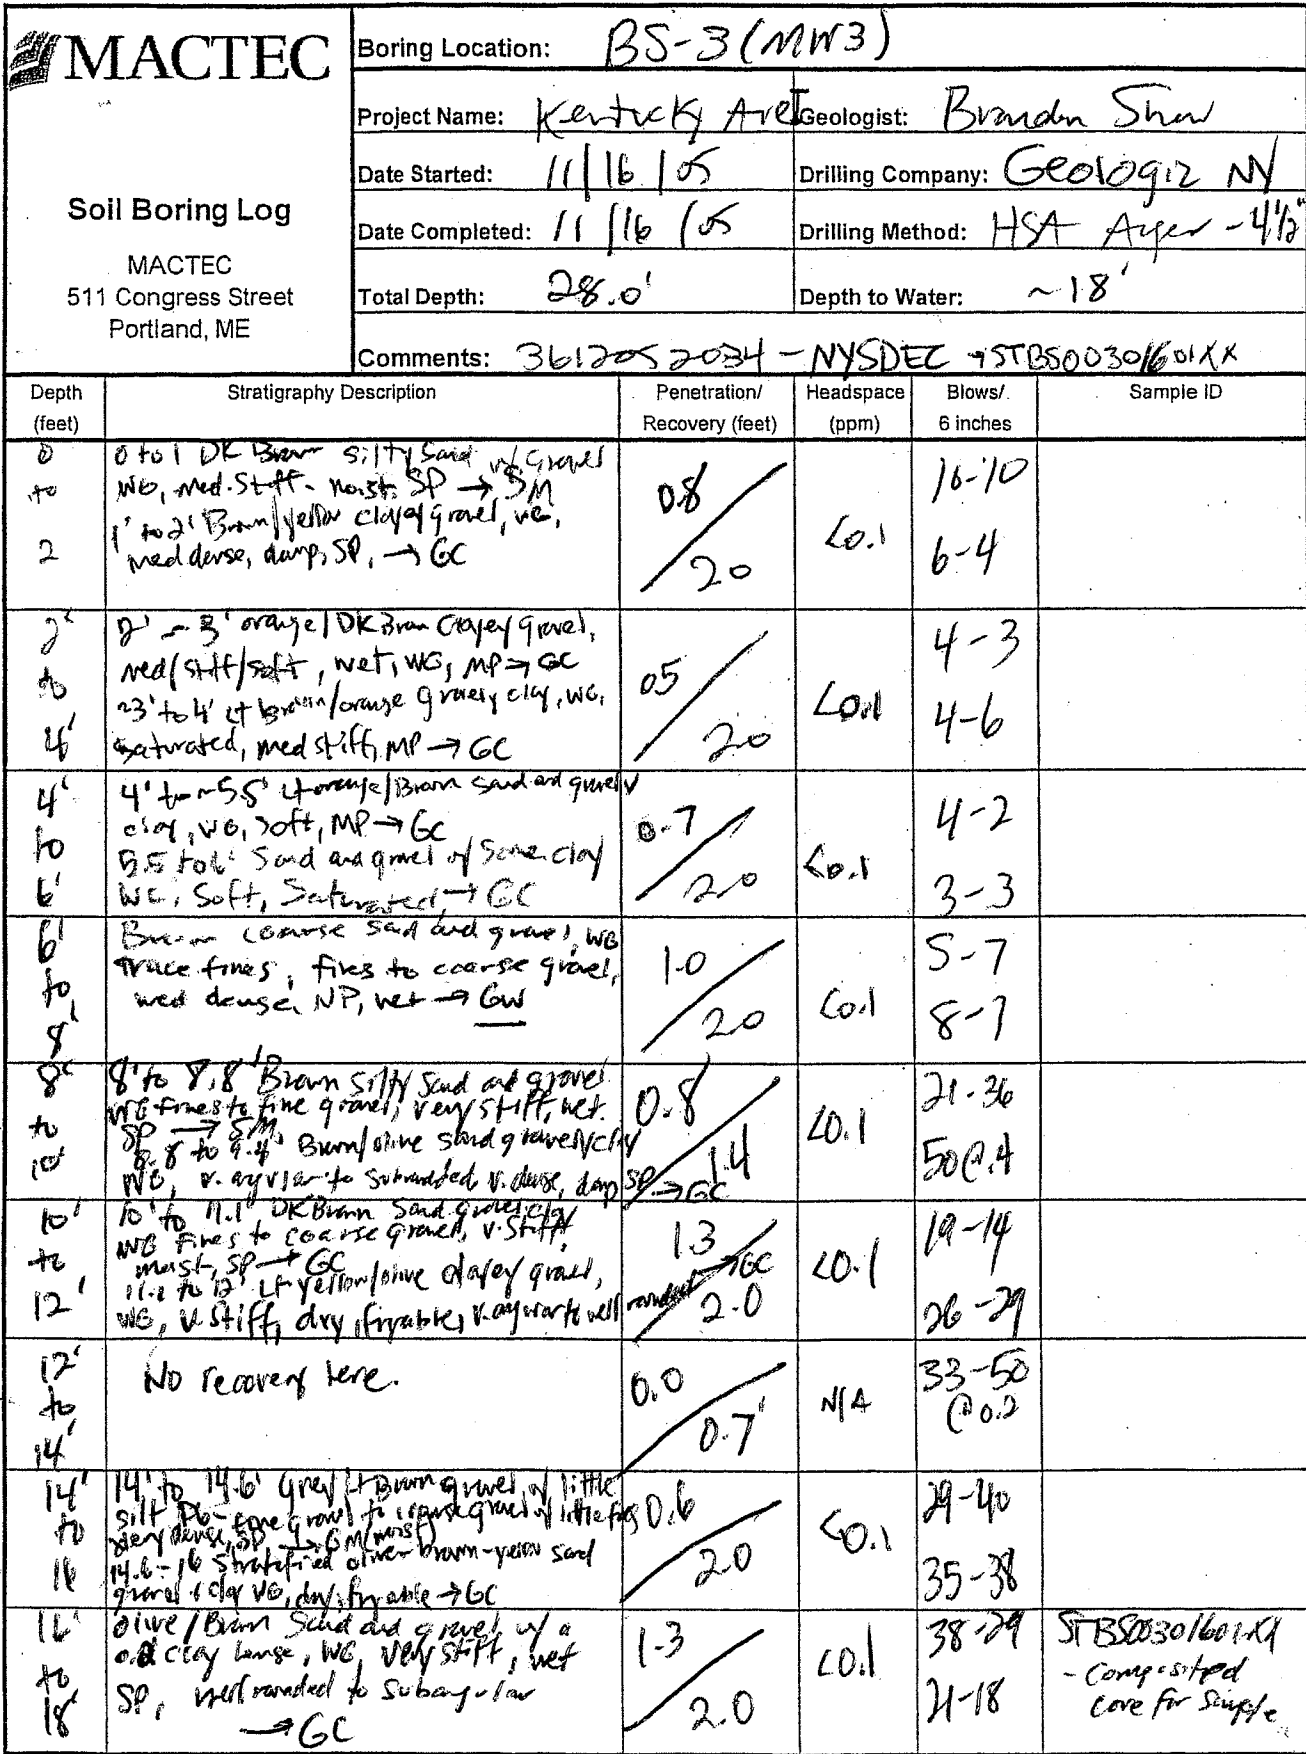 MACTEC
Soil Boring Log
MACTEC
511 Congress Street
Portland, ME
Boring Location: BS-3 (MW3)
Project Name: Kentucky Ave
Geologist: Brandon Shaw
Date Started: 11/16/05
Drilling Company: Geologic NY
Date Completed: 11/16/05
Drilling Method: HSA Auger - 4 1/2"
Total Depth: 28.0'
Depth to Water: ~18'
Comments: 3612052034 - NYSDEC STBS00301601XX
Depth (feet)
Stratigraphy Description
Penetration/ Recovery (feet)
Headspace (ppm)
Blows/. 6 inches
Sample ID
0 to 2
0 to 1 DK Brown silty Sand w/ Gravel
WG, med. Stiff - moist, SP → SM
1' to 2' Brown/yellow clayey gravel, WG,
med dense, damp, SP, → GC
0.8/20
<0.1
10-10
6-4
2' to 4'
2' - 3' orange/DK Brown Clayey gravel,
med/stiff/soft, wet, WG, MP → GC
~3' to 4' Lt brown/orange gravely clay, WG,
saturated, med stiff, MP → GC
05/20
<0.1
4-3
4-6
4' to 6'
4' to ~5.5' Lt orange/Brown sand and gravely
clay, WG, soft, MP → GC
5.5 to 6' Sand and gravel w/ Some clay
WG, Soft, Saturated, → GC
0.7/2.0
<0.1
4-2
3-3
6' to 8'
Brown coarse sand and gravel, WG
trace fines, fines to coarse gravel,
med dense, NP, wet → GW
1.0/2.0
<0.1
5-7
8-7
8' to 10'
8' to 8.8' Brown silty sand and gravel
WG fines to fine gravel, very stiff, wet.
SP → SM
8.8 to 9.4' Brown/olive sand gravelly clay
WG, v. angular to subrounded, v. dense, damp SP → GC
0.8/1.4
<0.1
21-36
50@.4
10' to 12'
10' to 11.1' DK Brown Sand gravel clay
WG fines to coarse gravel, v. Stiff,
moist, SP → GC
11.1 to 12' Lt yellow/olive clayey gravel,
WG, v. Stiff, dry, fryable, v. angular to well rounded → GC
1.3/2.0
<0.1
19-14
26-29
12' to 14'
No recovery here.
0.0/0.7'
N/A
33-50
@0.2
14' to 16
14' to 14.6' Grey/Lt Brown gravel w/ little
silt PG - fine gravel to coarse gravel w/ little fines
very dense, SP, → GM (moist)
14.6 - 16 Stratified olive-brown-yellow sand
gravel & clay WG, dry, fryable → GC
0.6/2.0
<0.1
29-40
35-38
16' to 18'
olive/Brown Sand and gravel w/ a
clay lense, WG, very stiff, wet
SP, well rounded to subangular
→ GC
1.3/2.0
<0.1
38-29
21-18
STBS00301601XX
- Composited
core for sample